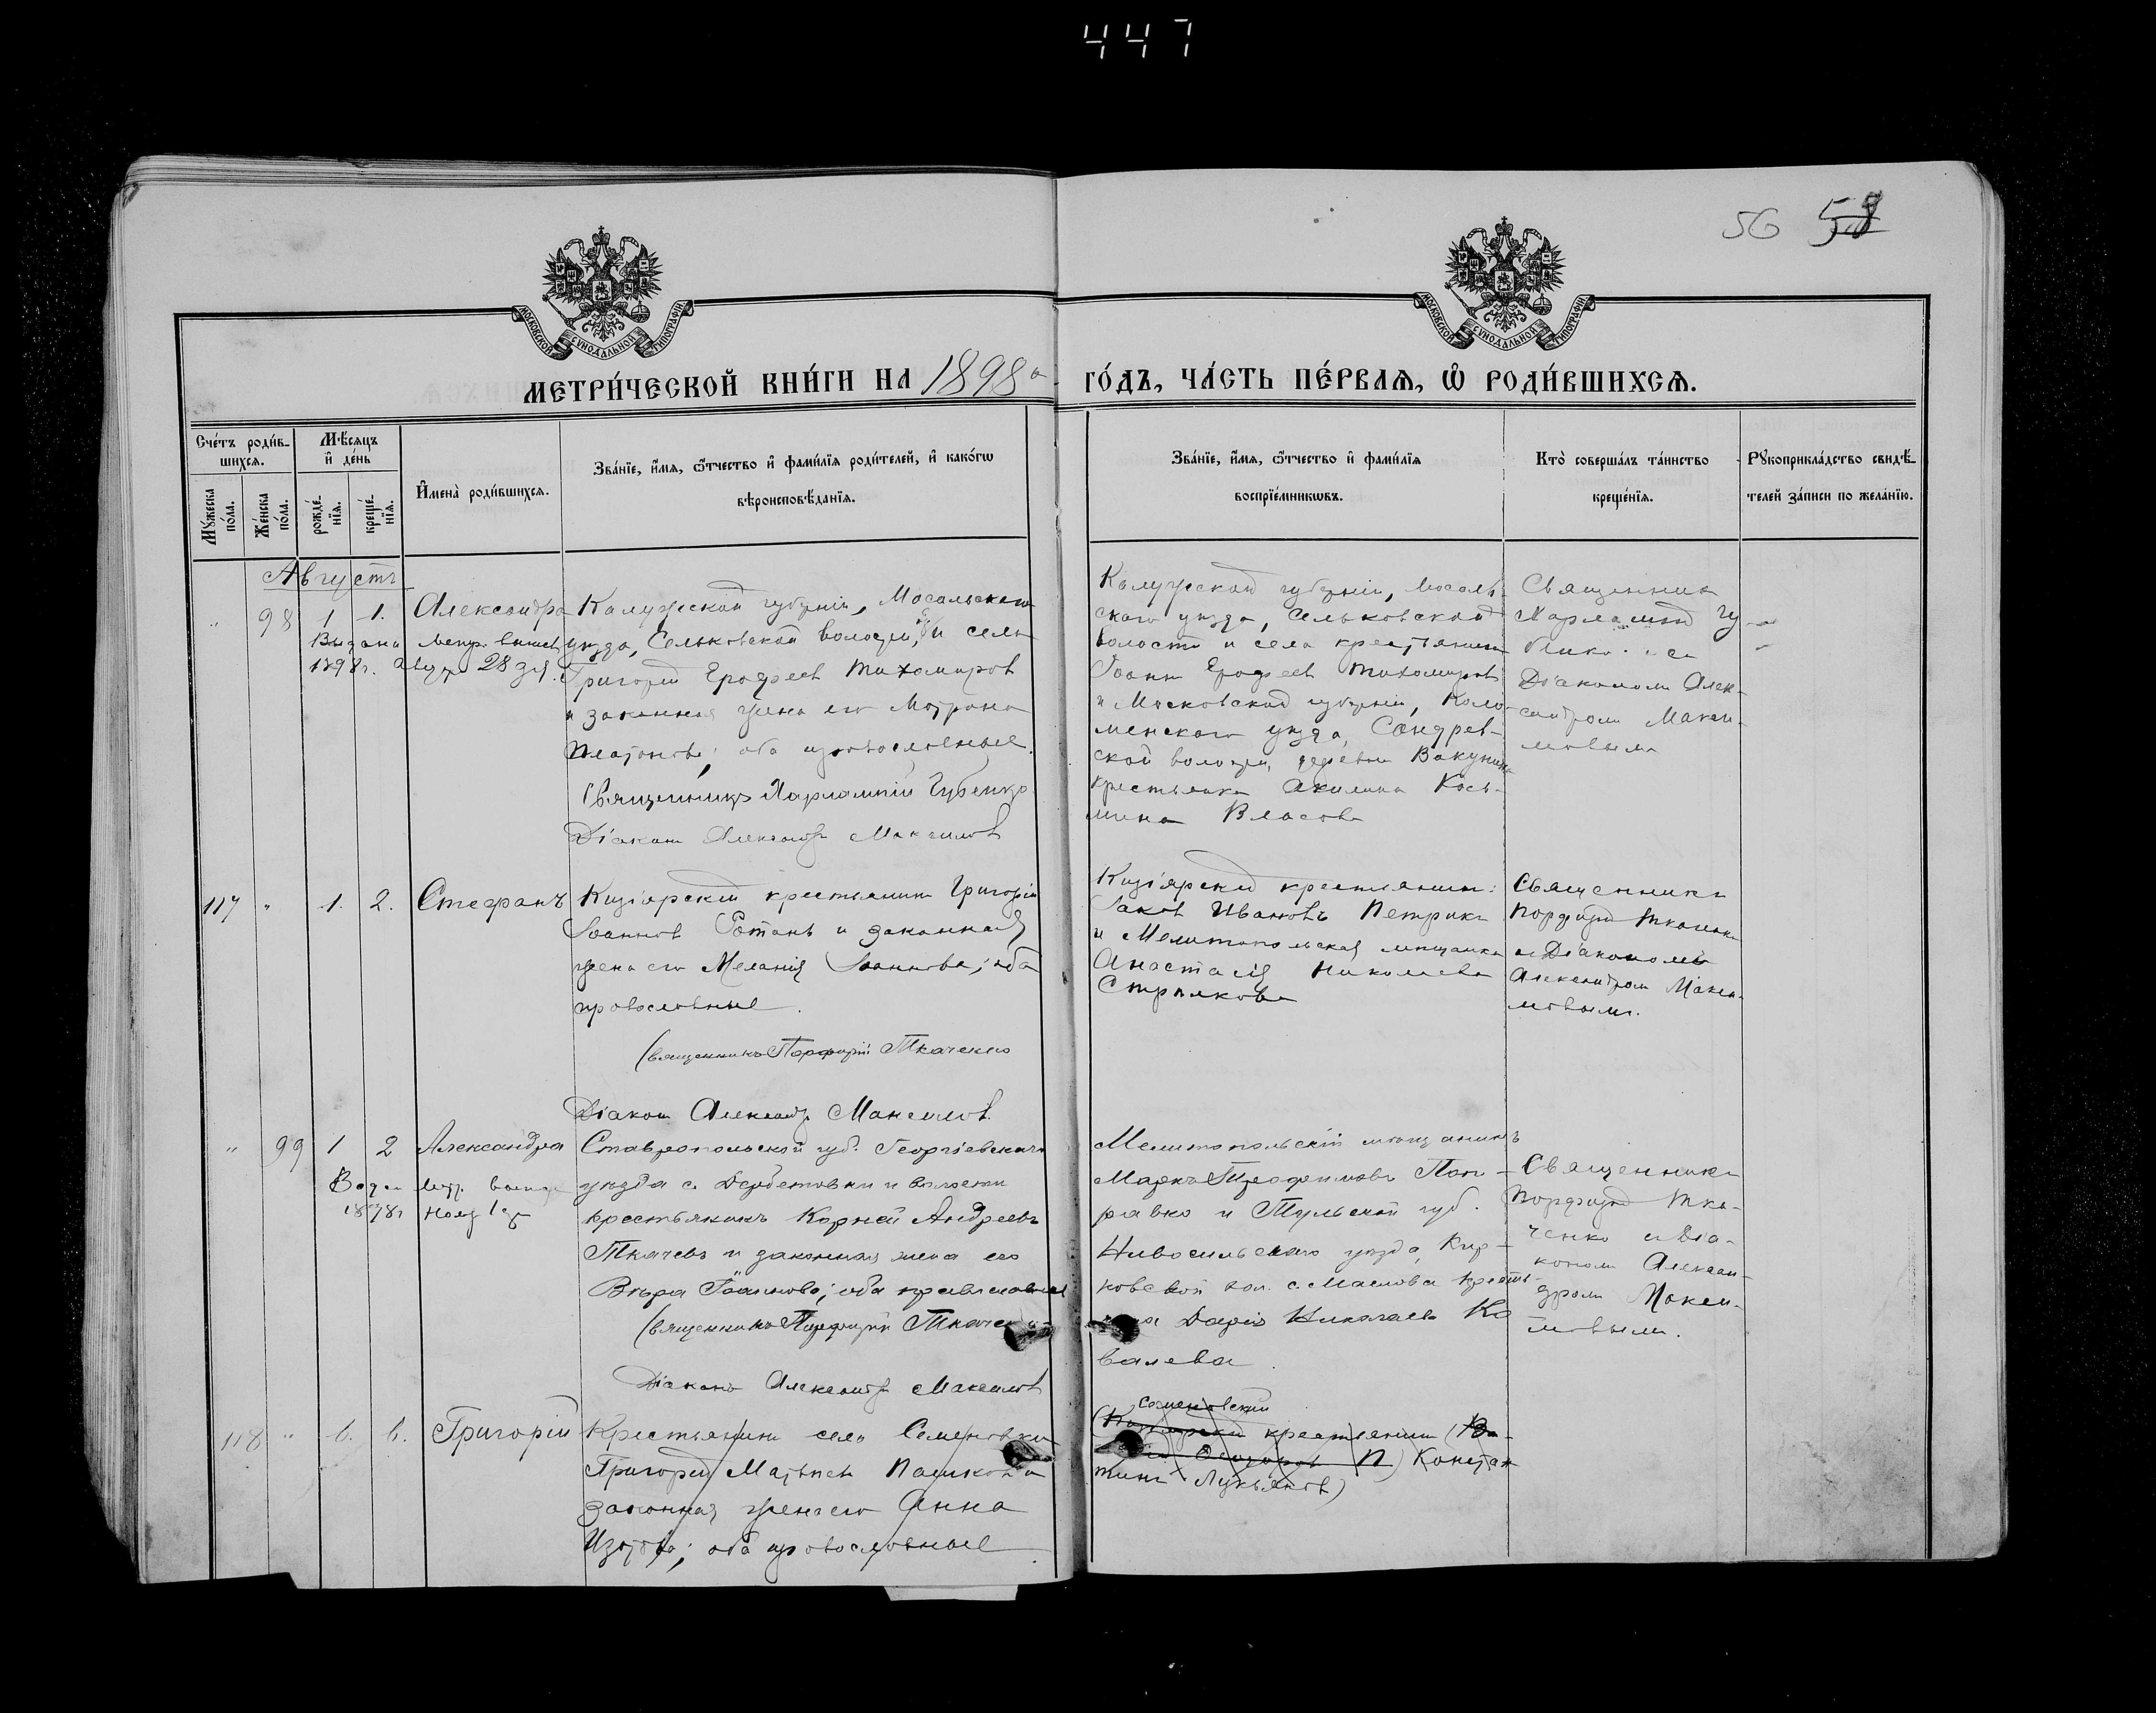 447
56 58
МОСКОВСКОЙ СѴНОДАЛЬНОЙ ТИПОГРАФІИ
МОСКОВСКОЙ СѴНОДАЛЬНОЙ ТИПОГРАФІИ
МЕТРИ́ЧЕСКОЙ КНИ́ГИ НА 1898 ГО́ДЪ, ЧА́СТЬ ПЕ́РВАѦ, Ѡ РОДИ́ВШИХСѦ.
Сче́тъ роди́в-
шихсѧ.
Мꙋ́жеска по́ла.
Же́нска по́ла.
Мѣ́сѧцъ
и҆ де́нь
рожде́-
нїѧ.
креще́-
нїѧ.
И҆мена̀ роди́вшихсѧ.
Зва́нїе, и҆́мѧ, ѻ҆́тчество и҆ фами́лїѧ роди́телей, и҆ како́гѡ
вѣроисповѣ́данїѧ.
Зва́нїе, и҆́мѧ, ѻ҆́тчество и҆ фами́лїѧ
воспрїе́мникѡвъ.
Кто̀ соверша́лъ та́инство
креще́нїѧ.
Рꙋкоприкла́дство свидѣ́-
телей за́писи по жела́нїю.
Августъ
" 98 1 1. Александра
Выдана метр. выпись
1898г. Авгу. 28 дня.
Калужской губерніи, Мосальскаго
уѣзда, Сельковской волости, и села
Григорій Ерофеев Тихомиров
и законная жена его Матрона
Платонова; оба православные.
Священникъ Харлампій Губенко
Діаконъ Александръ Максимов
Калужской губерніи, Мосаль-
скаго уѣзда, Сельковской
волости и села крестьянинъ
Іоаннъ Ерофеев Тихомиров
и Московской губерніи, Коло-
менскаго уѣзда, Сандрев-
ской волости, деревни Вакунино
крестьянка Акилина Кось-
мина Власова
Священник
Харлампій Гу-
бенко съ
Діакономъ Алек-
сандромъ Макси-
мовымъ
117 " 1. 2. Стефанъ
Кизіярскій крестьянинъ Григорій
Іоаннов Ротань и законная
жена его Меланія Іоаннова; оба
православные.
Священникъ Порфирій Ткаченко
Діаконъ Александръ Максимов
Кизіярскій крестьянинъ
Іаков Ивановъ Петрик
и Мелитопольская мещанка
Анастасія Николаева
Стрѣлкова
Священникъ
Порфирій Ткаченко
съ Діакономъ
Александромъ Макси-
мовымъ.
" 99 1 2 Александра
Выдан метр. выпись
1898г нояб 1 дн
Ставропольской губ. Георгіевскаго
уѣзда с. Дербетовки и волости
крестьянинъ Корней Андреевъ
Ткачевъ и законная жена его
Вѣра Іоаннова; оба православные
Священникъ Порфирій Ткаченко
Діаконъ Александръ Максимов
Мелитопольскій мѣщанинъ
Маркъ Трофимовъ Пон-
равко и Тульской губ.
Новосильскаго уѣзда, Кир-
ковской вол. с. Маслова крестья-
нка Дарія Николаева Ко
валева.
Священникъ
Порфирій Тка-
ченко съ Діа-
кономъ Алексан-
дромъ Макси-
мовымъ.
118 " 6. 6. Григорій
Крестьянинъ села Семеновки
Григорій Матвѣев Пашков и
законная жена его Анна
Изотова; оба православные.
Семеновскій
крестьянинъ
Констан
тинъ Лукьянов)